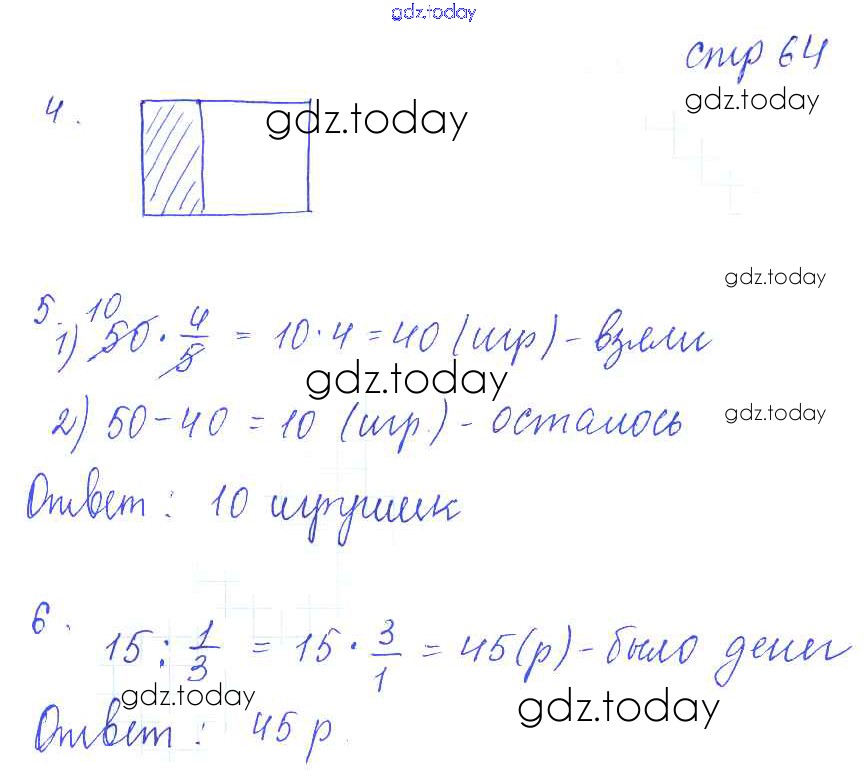 gdz.today
стр 64
gdz.today
4.
gdz.today
gdz.today
5.
1) 50 10 · 4/5 = 10 · 4 = 40 (игр) - взяли
gdz.today
2) 50 - 40 = 10 (игр.) - осталось
gdz.today
Ответ: 10 игрушек
6.
15 : 1/3 = 15 · 3/1 = 45 (р) - было денег
gdz.today
gdz.today
Ответ: 45 р.